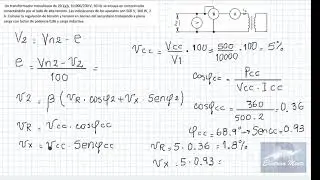 Un transformador monofásico de 20 kVA, 10.000/230 V, 50 Hz se ensaya en cortocircuito
conectándolo por el lado de alta tensión. Las indicaciones de los aparatos son 500 V, 360 W, 2
A. Evaluar la regulación de tensión y tensión en bornes del secundario trabajando a plena
carga con factor de potencia 0,86 y carga inductiva.
V2 = Vn2 - e
e = Vn2 - V2
100
V2 = β (VR . cosφ2 + VX . Senφ2)
VR = Vcc . cosφcc
VX = Vcc . Senφcc
Vcc = Vcc . 100 = 500 . 100 = 5%
V1 10000
cosφcc = Pcc
Vcc . Icc
cosφcc = 360 = 0.36
500 . 2
φcc = 68.9° → Sencc = 0.93
VR = 5 . 0.36 = 1.8%
VX . 5 . 0.93 =
Electron Mente